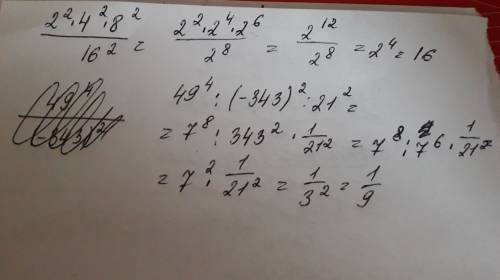 2²·4²·8² / 16² = 2²·2⁴·2⁶ / 2⁸ = 2¹² / 2⁸ = 2⁴ = 16
49⁴ : (-343)² : 21² =
= 7⁸ : 343² · 1/21² = 7⁸ : 7⁶ · 1/21²
= 7² · 1/21² = 1/3² = 1/9